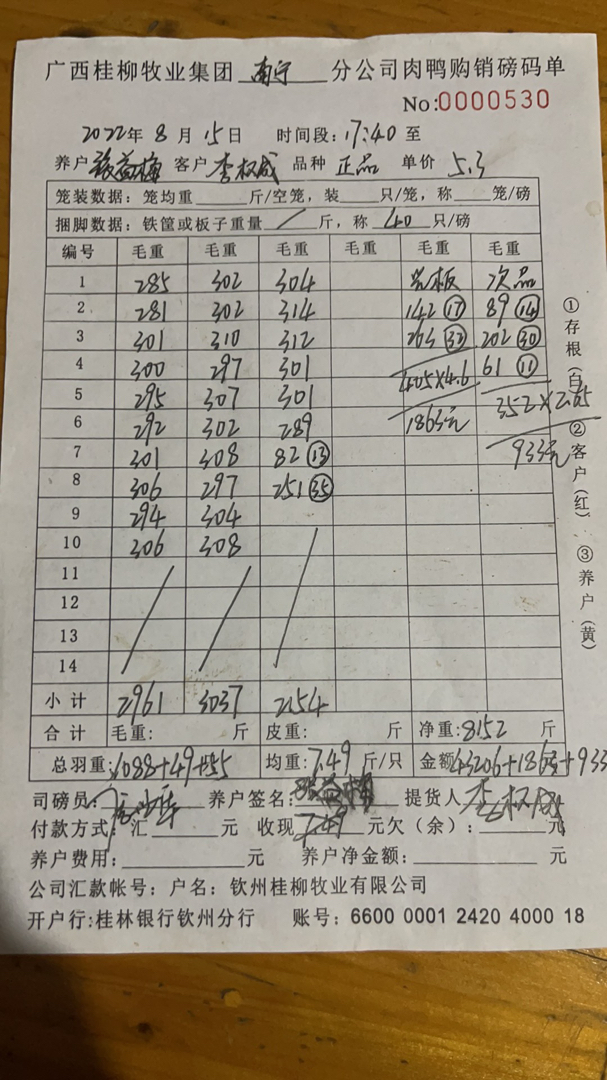 广西桂柳牧业集团 南宁 分公司肉鸭购销磅码单
No:0000530
2022年 8 月 15日 时间段: 17:40 至
养户 张益梅 客户 李权威 品种 正品 单价 5.3
笼装数据: 笼均重 斤/空笼, 装 只/笼, 称 笼/磅
捆脚数据: 铁筐或板子重量 / 斤, 称 40 只/磅
编号 毛重 毛重 毛重 毛重 毛重 毛重
1 285 302 304 光板 次品
2 281 302 314 142 ⑰ 89 ⑭
3 301 310 312 263 ㉜ 202 ㉚
4 300 297 301 405×4.6 61 ⑪
5 295 307 301 352×2.65
6 292 302 289 1863元
7 301 308 82 ⑬ 933元
8 306 297 251 ㉟
9 294 304
10 306 308
11
12
13
14
小计 2961 3037 2154
合计 毛重: 斤 皮重: 斤 净重: 8152 斤
总羽重: 1088+49+55 均重: 7.49 斤/只 金额 43206+1863+933
司磅员: 养户签名: 提货人 李权威
付款方式: 汇 元 收现 7.49 元欠(余): 元
养户费用: 元 养户净金额: 元
公司汇款帐号: 户名: 钦州桂柳牧业有限公司
开户行:桂林银行钦州分行 账号: 6600 0001 2420 4000 18
①存根(白)②客户(红)③养户(黄)